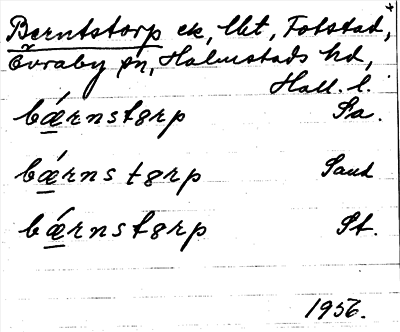 Berntstorp ek, lht, Fotstad,
Övraby sn, Halmstads hd,
Hall. l.
bǽrnstɞrp Sa.
bǽrnstɞrp Sand
bǽrnstɞrp St.
1956.